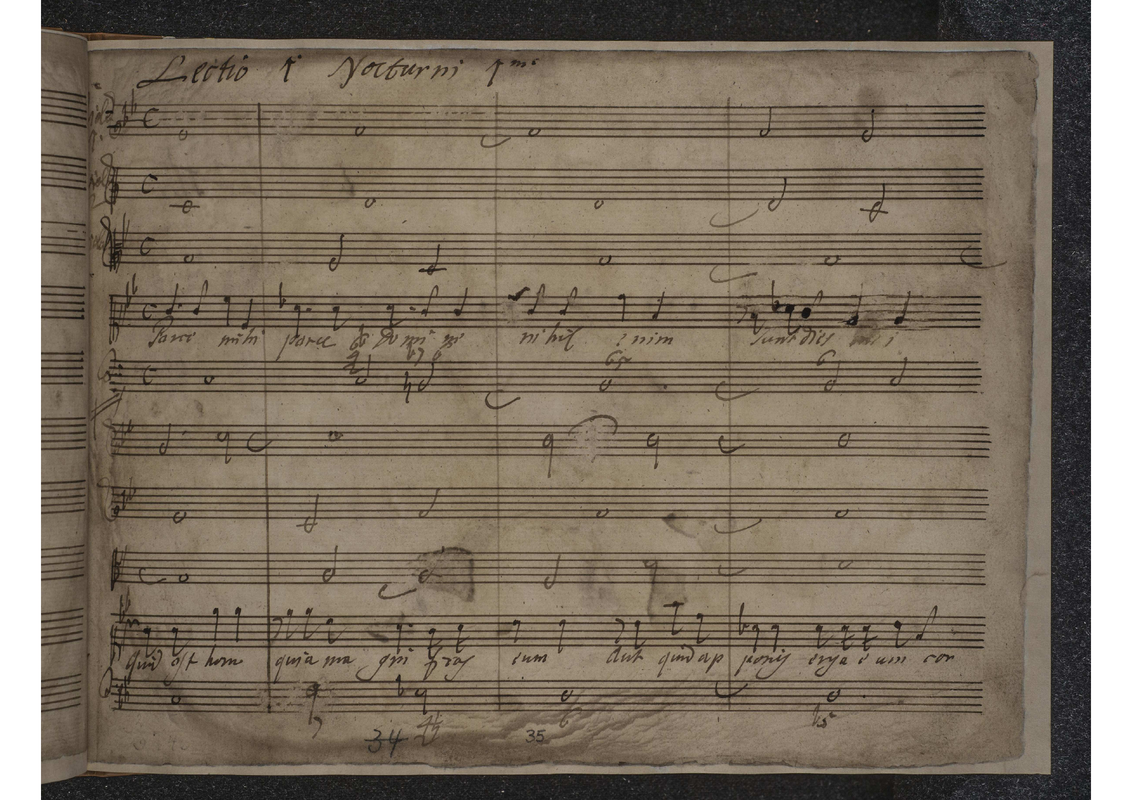 Lectio 1 Nocturni 1mi
Parce mihi parce Domine nihil enim sunt dies mei
quid est homo quia magni fras eum Aut quid ap ponis erga eum cor
34
35